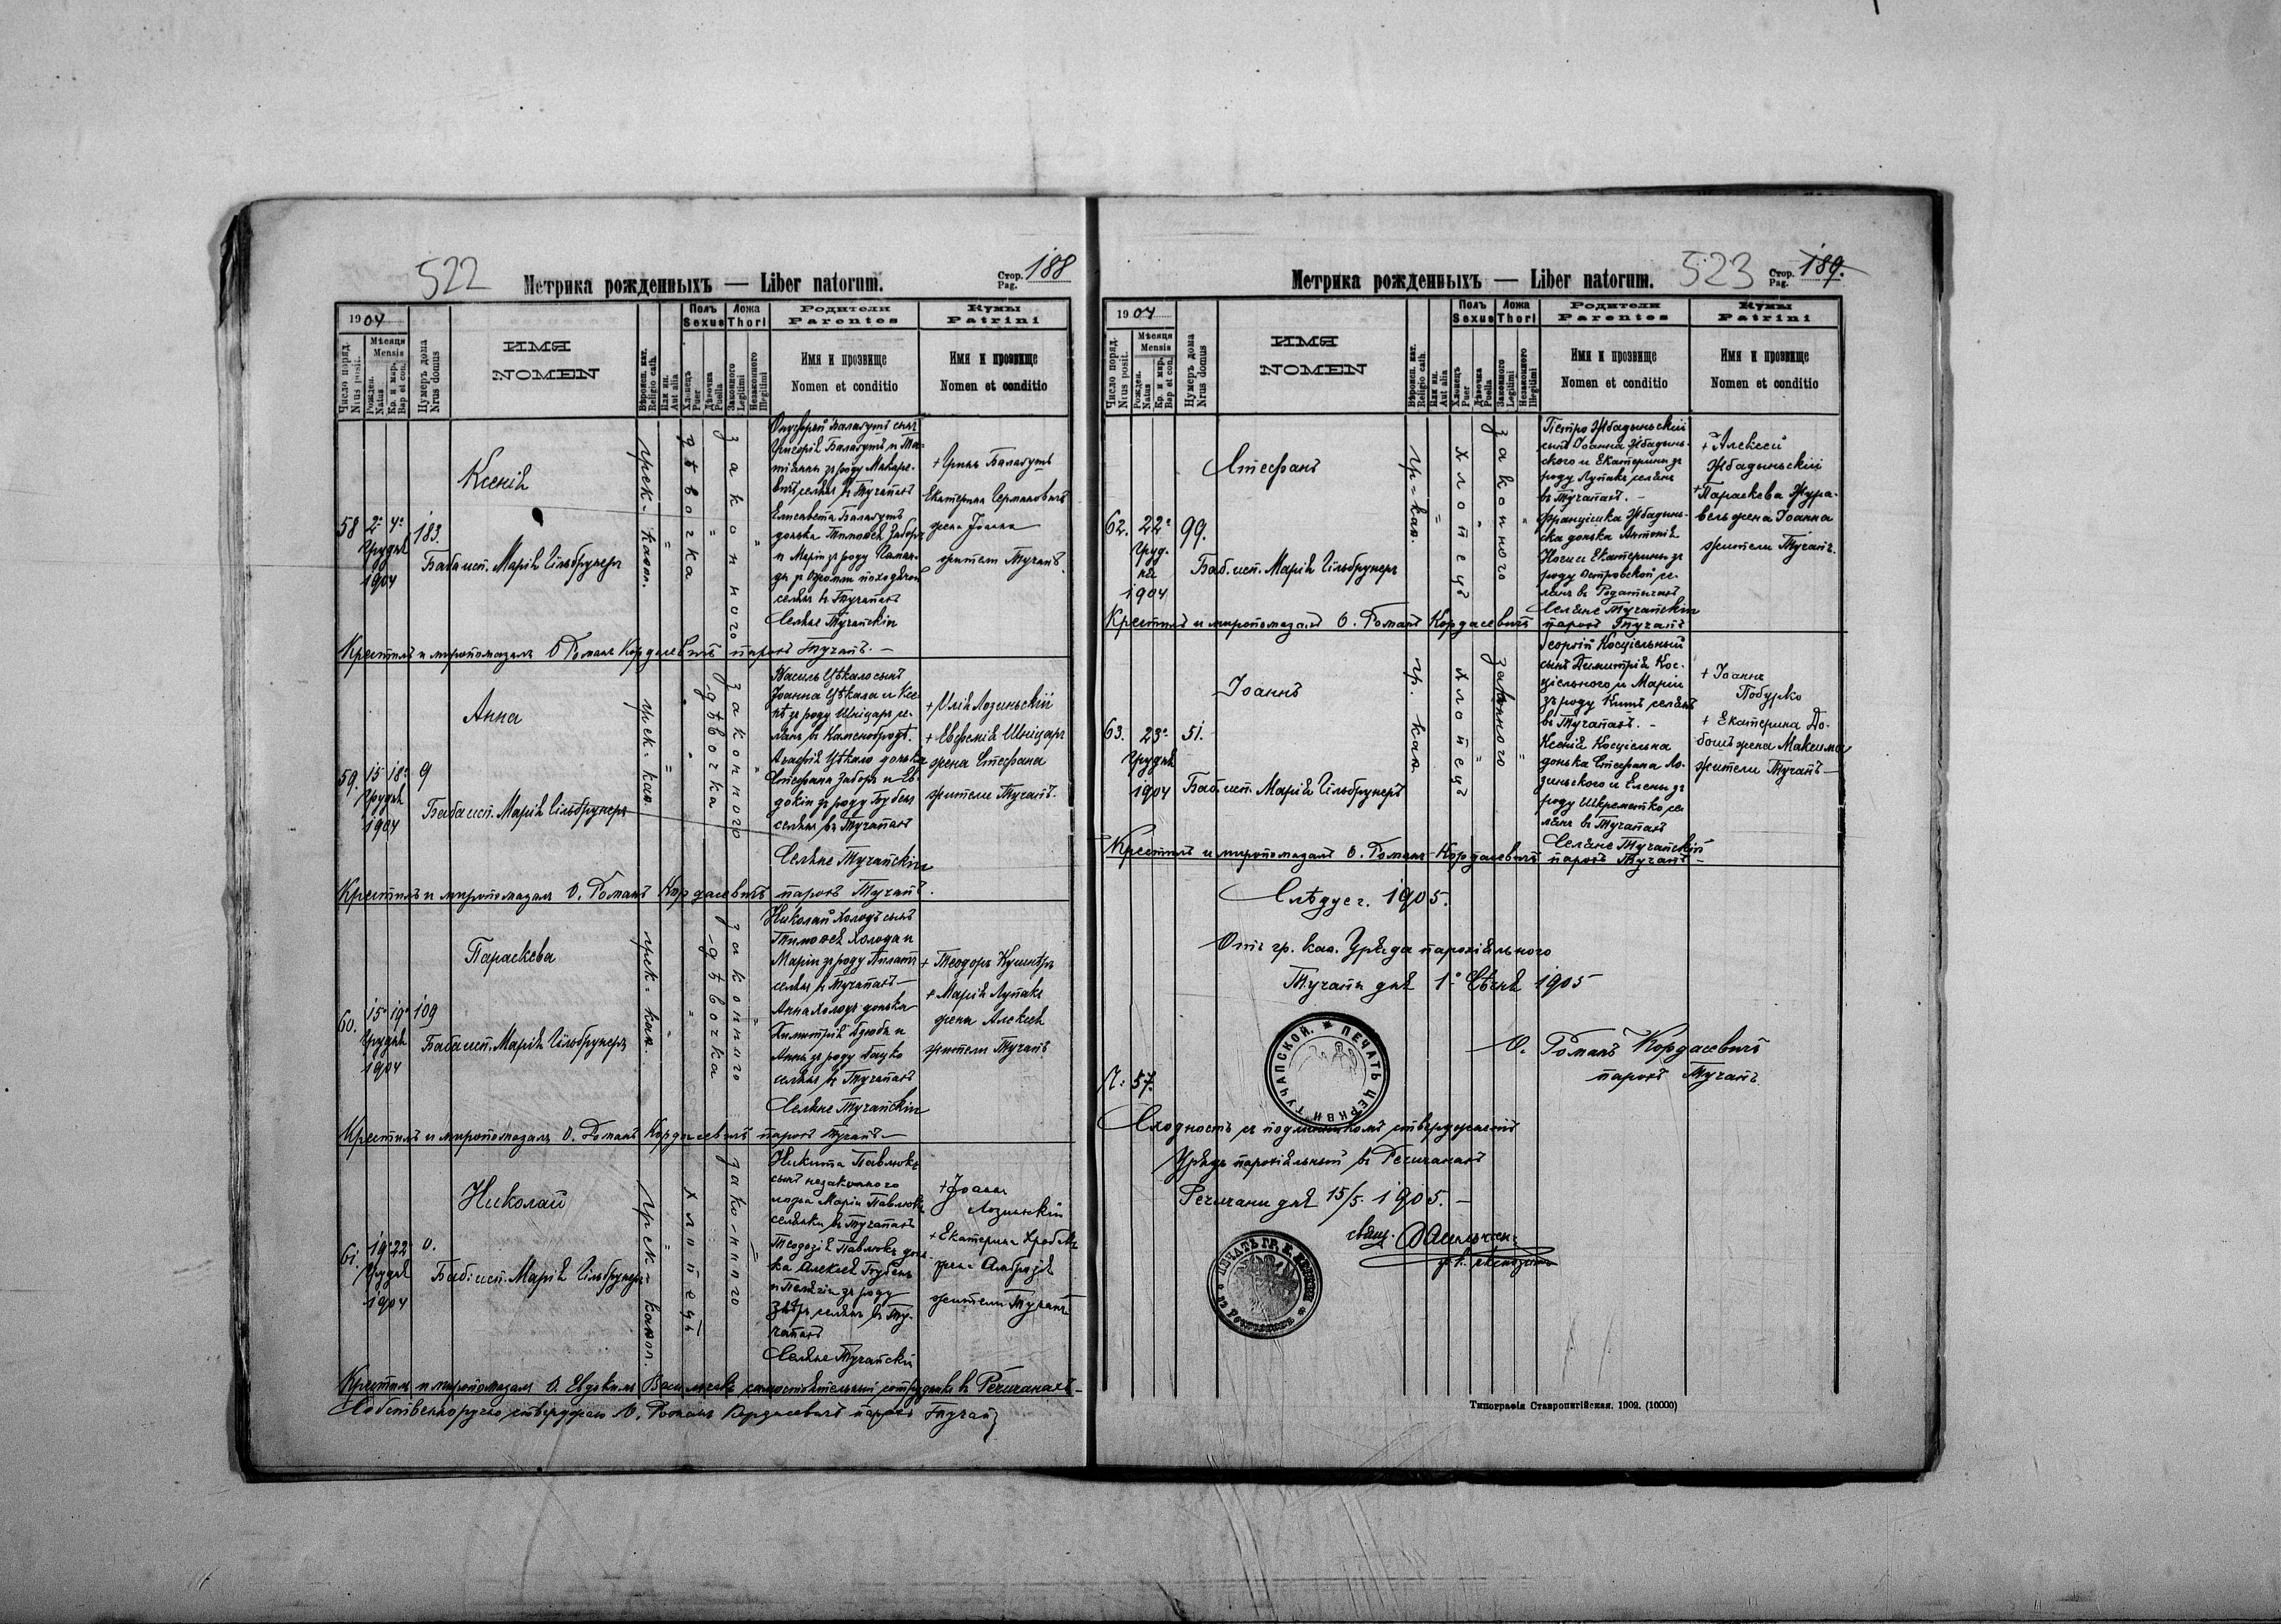 522
Метрика рожденныхъ — Liber natorum.
Стор. Pag. 188
1904
Число поряд. Nrus posit.
Мѣсяця Mensis
Рожден. Natus
Кр. и мир. Bap et con.
Нумеръ дома Nrus domus
ИМЯ
NOMEN
Вѣроисп. кат. Religio cath.
Или ин. Aut alia
Полъ Sexus
Хлопецъ Puer
Дѣвочка Puella
Ложа Thori
Законного Legitimi
Незаконного Illegitimi
Родители
Parentes
Имя и прозвище
Nomen et conditio
Кумы
Patrini
Имя и прозвище
Nomen et conditio
58 2. 4. Грудня 1904
183.
Ксенія
Баба исп. Марія Гільбрунеръ
грек. кат.
дѣвочка
законного
Балабутъ сынъ
Григорія Балабутъ и Та-
тіанны зъ роду
селянъ въ Тучапахъ
Елисавета Балабутъ
донька Тимофея
и Маріи зъ роду
селянъ въ Тучапахъ
Селяне Тучапскіи
+ Гринь Балабутъ
Екатерина Германовичъ
жена Іоанна
жители Тучапъ.
Крестилъ и миропомазалъ О. Романъ Кордасевичъ парохъ Тучапъ. —
59. 15. 18. Грудня 1904
9
Анна
Баба исп. Марія Гільбрунеръ
грек. кат.
дѣвочка
законного
Василь Цѣкало сынъ
Іоанна Цѣкала и Ксе-
ніи зъ роду Шніцаръ се-
лянъ въ Каменобродѣ.
Агафія Цѣкало донька
Стефана и Ев-
докіи зъ роду Бубенъ
селянъ въ Тучапахъ
Селяне Тучапскіи
+ Илія Лозиньскій
+ Евфемія Шніцаръ
жена Стефана
жители Тучапъ.
Крестилъ и миропомазалъ О. Романъ Кордасевичъ парохъ Тучапъ.
60. 15. 19. Грудня 1904
109
Параскева
Баба исп. Марія Гільбрунеръ
грек. кат.
дѣвочка
законного
Николай Холодъ сынъ
Тимофея Холода и
Маріи зъ роду
селянъ въ Тучапахъ —
Анна Холодъ донька
Димитрія Дзюбы и
Анны зъ роду
селянъ въ Тучапахъ
Селяне Тучапскіи
+ Теодоръ Кушнѣръ
+ Марія Лупакъ
жена Алексея
жители Тучапъ
Крестилъ и миропомазалъ О. Романъ Кордасевичъ парохъ Тучапъ —
61. 19. 22. Грудня 1904
0.
Николай
Баба исп. Марія Гільбрунеръ
грек. катол.
хлопецъ
законного
Никита Павлюкъ
сынъ незаконного
ложа Маріи Павлюкъ
селянки въ Тучапахъ
Теодозія Павлюкъ донь-
ка Алексея Бубенъ
и Пелагіи зъ роду
селянъ въ Ту-
чапахъ
Селяне Тучапскіи
+ Іоаннъ
Лозиньскій
+ Екатерина
жена Амброзія
жители Тучапъ
Крестилъ и миропомазалъ О. Евдокимъ Васильчакъ самостоятельный сотрудникъ въ Речичанахъ —
Собственноручно стверджаю О. Романъ Кордасевичъ парохъ Тучапъ
Метрика рожденныхъ — Liber natorum.
523
Стор. Pag. 189.
1904
Число поряд. Nrus posit.
Мѣсяця Mensis
Рожден. Natus
Кр. и мир. Bap et con.
Нумеръ дома Nrus domus
ИМЯ
NOMEN
Вѣроисп. кат. Religio cath.
Или ин. Aut alia
Полъ Sexus
Хлопецъ Puer
Дѣвочка Puella
Ложа Thori
Законного Legitimi
Незаконного Illegitimi
Родители
Parentes
Имя и прозвище
Nomen et conditio
Кумы
Patrini
Имя и прозвище
Nomen et conditio
62. 22. Грудня 1904
99.
Стефанъ
Баб. исп. Марія Гільбрунеръ
гр. кат.
хлопецъ
законного
Петро Жбадыньскій
сынъ Іоанна Жбадынь-
ского и Екатерины зъ
роду Лупакъ селянъ
въ Тучапахъ. —
Францішка Жбадынь-
ска донька Антонія
и Екатерины зъ
роду Островской се-
лянъ въ Родатичахъ
Селяне Тучапскіи
+ Алексей
Жбадыньскій
+ Параскева Жура-
вель жена Іоанна
жители Тучапъ.
Крестилъ и миропомазалъ О. Романъ Кордасевичъ парохъ Тучапъ
63. 23. Грудня 1904
51.
Іоаннъ
Баб. исп. Марія Гільбрунеръ
гр. кат.
хлопецъ
законного
Георгій Косцѣльный
сынъ Димитрія Кос-
цѣльного и Маріи
зъ роду Китъ селянъ
въ Тучапахъ. —
Ксенія Косцѣльна
донька Стефана Ло-
зиньского и Елены зъ
роду Шкреметко се-
лянъ въ Тучапахъ
Селяне Тучапскіи
+ Іоаннъ
Побурко
+ Екатерина До-
бошъ жена Максима
жители Тучапъ —
Крестилъ и миропомазалъ О. Романъ Кордасевичъ парохъ Тучапъ —
Слѣдуе г. 1905.
Отъ гр. кат. Уряда парохіяльного
Тучапы дня 1. Сѣчня 1905
О. Романъ Кордасевичъ
парохъ Тучапъ
ПЕЧАТЬ ЦЕРКВИ ТУЧАПСКОЙ.
Л: 57.
Сходность съ подлинникомъ стверджаетъ
Урядъ парохіяльный въ Речичанахъ
Речичаны дня 15/5. 1905. —
свящ. Васильчакъ
Типографія Ставропигійская. 1902. (10000)